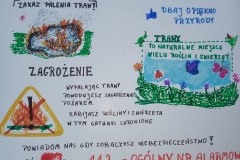 ZAKAZ PALENIA TRAW!
DBAJ O PIĘKNO
PRZYRODY
TRAWY
TO NATURALNE MIEJSCE
WIELU ROŚLIN I ZWIERZĄT
ZAGROŻENIE
WYPALAJĄC TRAWY
POWODUJESZ ZAGROŻENIE
POŻAREM
ZABIJASZ ROŚLINY I ZWIERZĘTA
W TYM GATUNKI CHRONIONE
POWIADOM NAS GDY ZOBACZYSZ NIEBEZPIECZEŃSTWO!
112 - OGÓLNY NR ALARMOWY